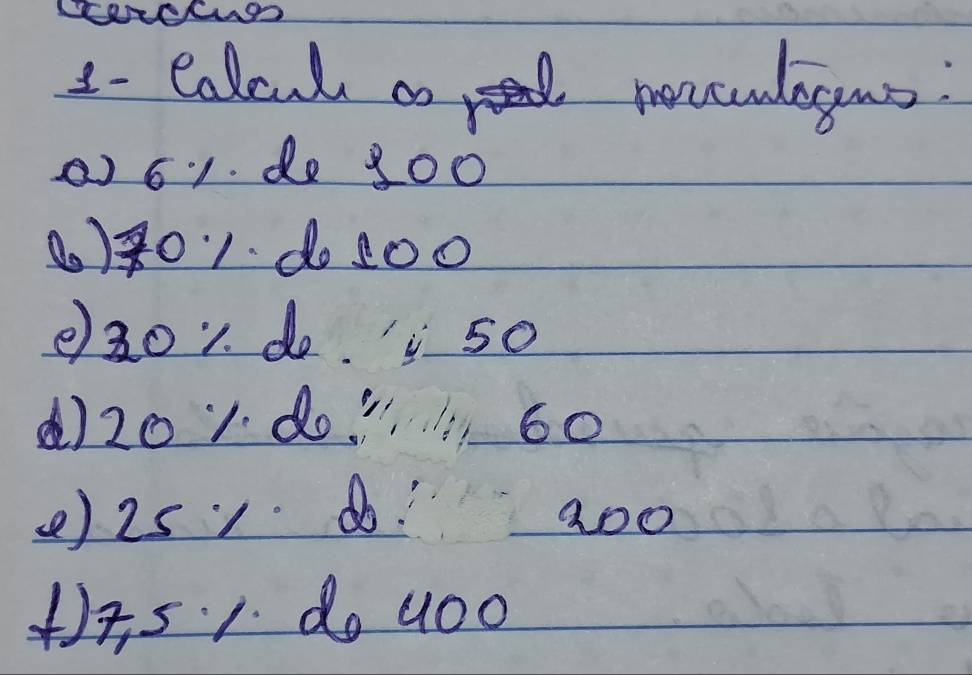 Exercícios
1- Calcule as porcentagens:
a) 6% de 100
b) 70% de 100
c) 30% de 50
d) 20% de 60
e) 25% de 200
f) 7,5% de 400